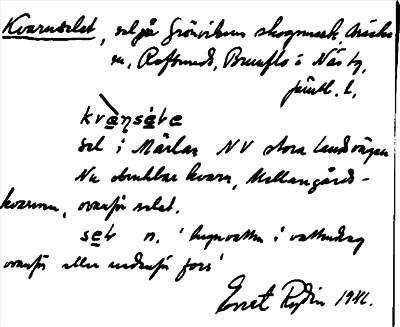 Kvarnselet, sel på Grönvikens skogsmark, Mörke-
m, Rafsunds, Brunflo i Näs tg,
Jämtl. l.
kvaɳse̩le
sel i Märlan NV stora landsvägen
Nu obrukbar kvarn, Mellangårds-
kvarnen, ovanför selet.
sel n. 'lugnvatten i vattendrag
ovanför eller nedanför fors'
Ernst Rydin 1946.